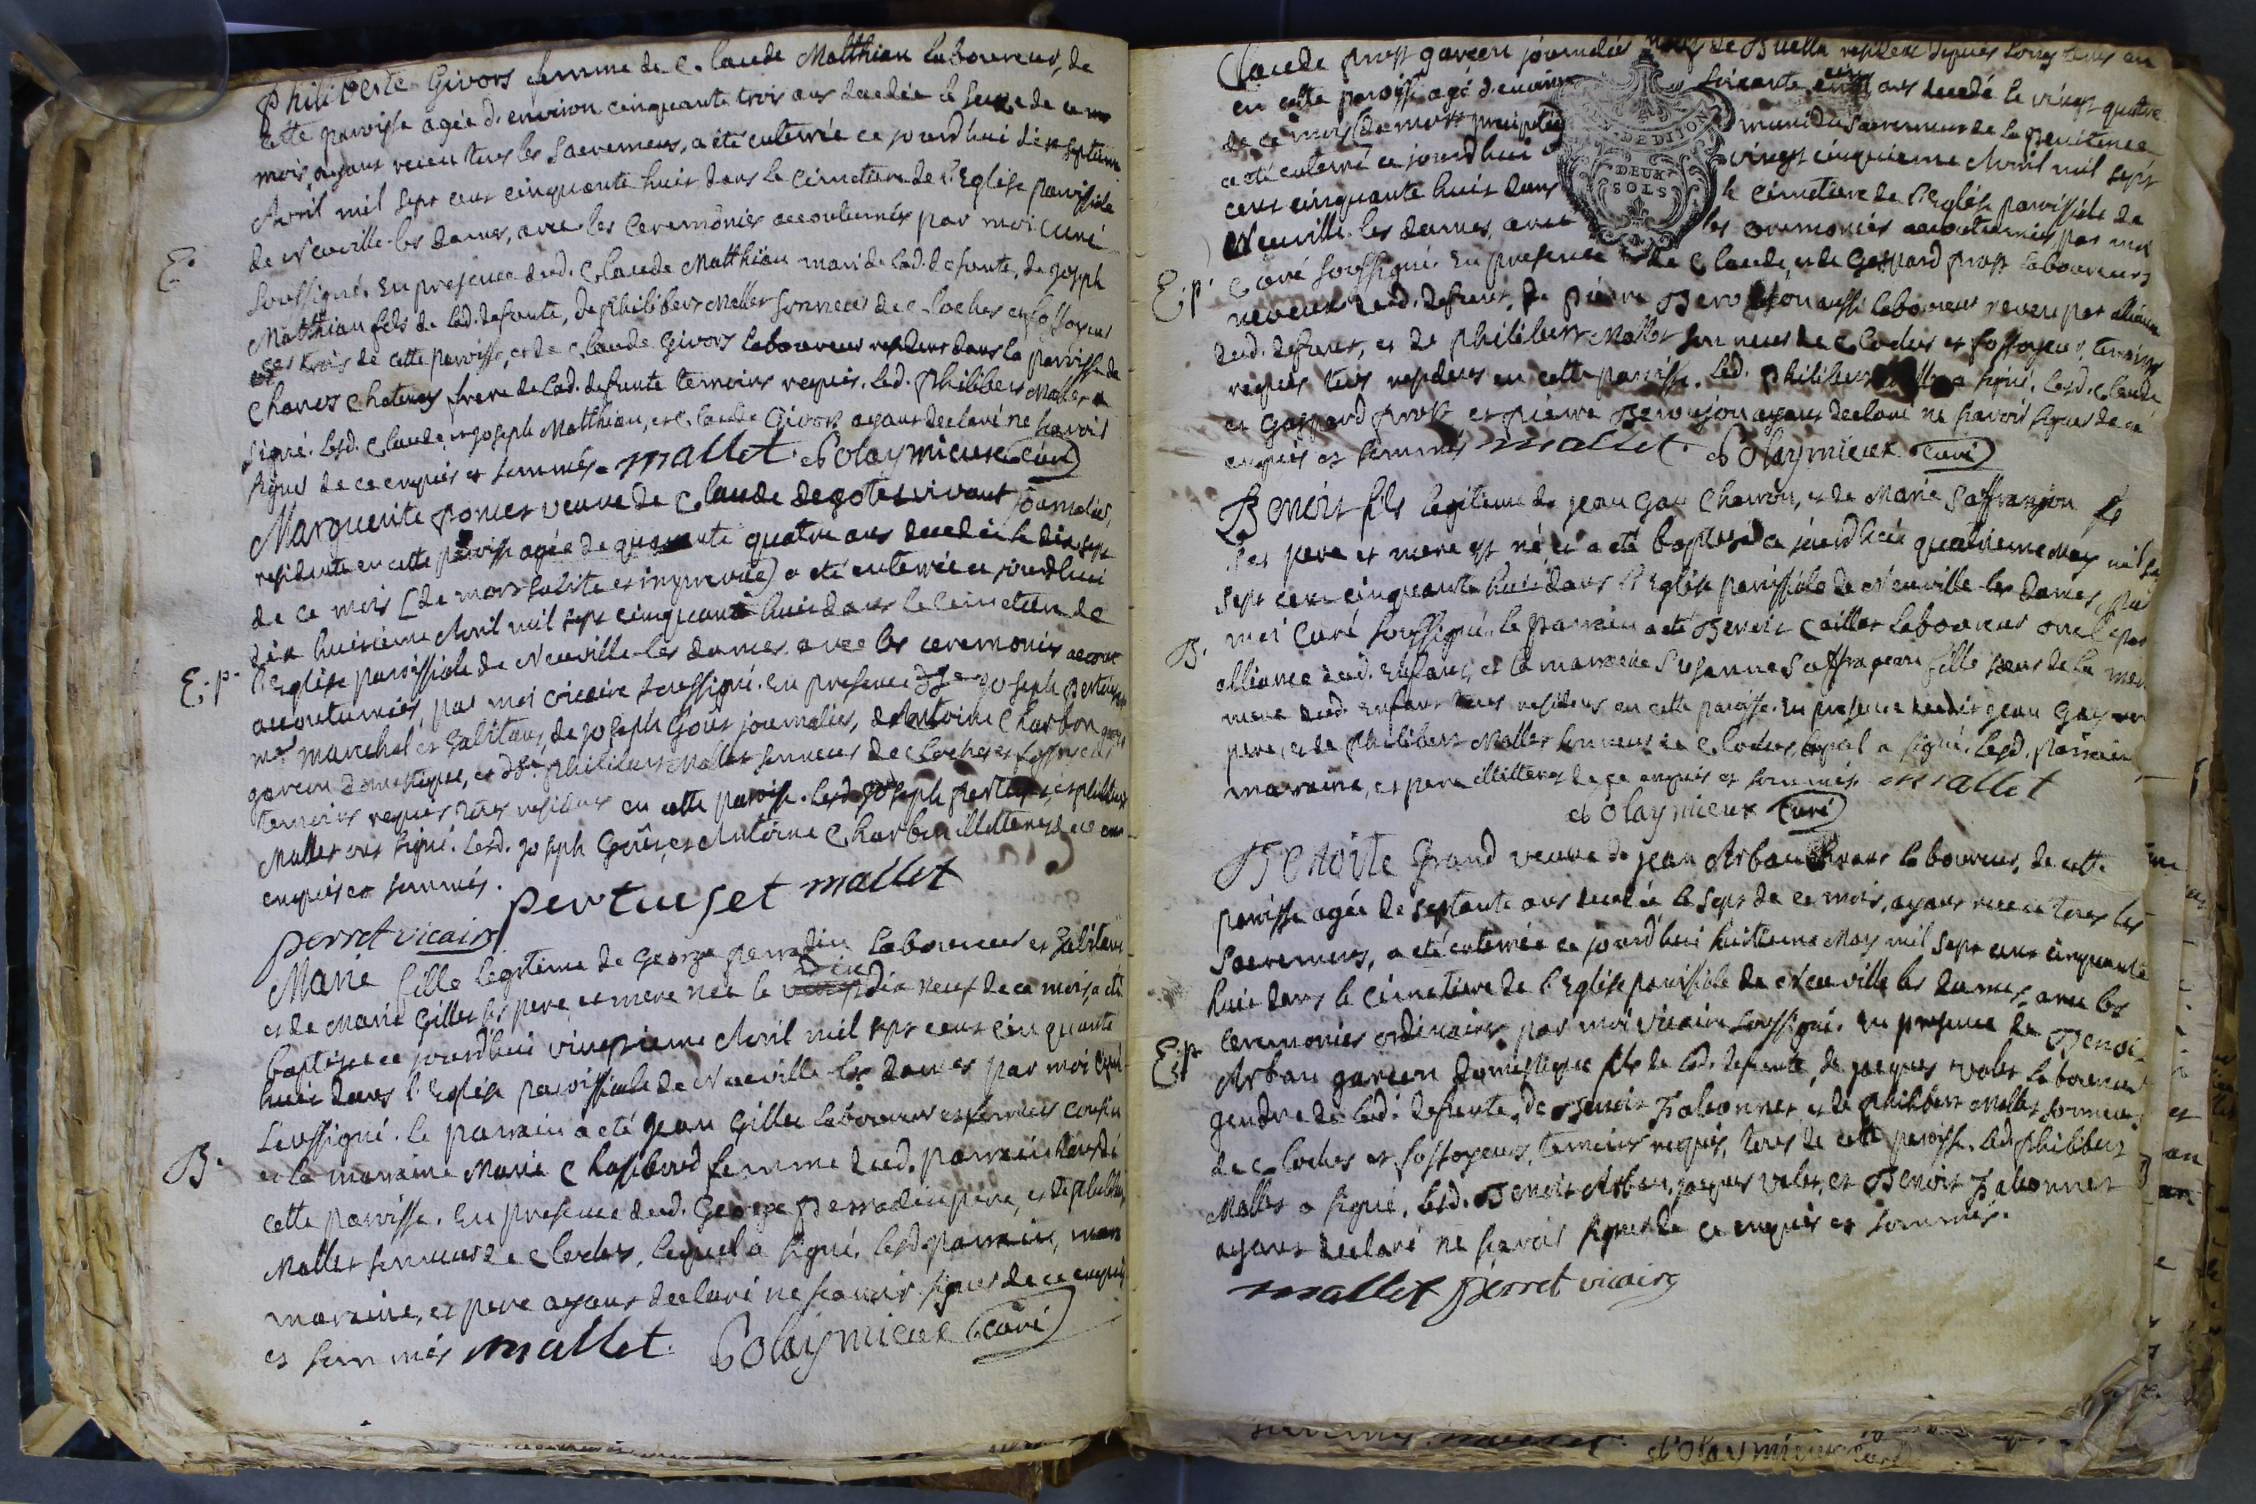 Philiberte Givors femme de Claude Matthian laboureur, de
cette paroisse agée d'environ cinquante trois ans decedée le seize de ce mo
mois, ayant receu tous les Sacremens, a été enterrée ce jourdhui dix septieme
Avril mil sept cent cinquante huit dans le Cimetiere de l'Eglise paroissiale
de Neuville-les dames, avec les Ceremonies accoutumées par moi Curé
E.
Soussigné. En presence dud. Claude Matthian mari de lad. defunte, de Joseph
Matthian fils de lad. defunte, de Philibert Mallet sonneur de cloches et fossoyeur
trois de cette paroisse, et de Claude Givors laboureur resident dans la paroisse de
Chanos Chatenay frere de lad. defunte temoins requis. led. Philibert Mallet a
signé. lesd. Claude, et Joseph Matthian, et Claude Givors ayant declaré ne savoir
signer de ce enquis et sommés. mallet. Polaymieux Curé
Marguerite poncet veuve de Claude vivant journalier,
residente en cette paroisse agée de quarante quatre ans decedée le dix sept
de ce mois (de mort subite et imprevue) a été enterrée ce jourdhui
dix huitieme Avril mil sept cinquante huit dans le Cimetiere de
E. p.
l'Eglise paroissiale de Neuville-les dames avec les ceremonies accout
accoutumées, par moi vicaire soussigné. En presence de Joseph
me marechal et habitans, de Joseph Goût journalier, d'Antoine Charbon
garcon domestique, et de Philibert Mallet sonneur de cloches et fossoyeur
temoins requis tous residens en cette paroisse. lesd. Joseph pertuiset, et philibert
Mallet ont signé. lesd. Joseph Goût, et Antoine Charbon illitterés de ce
enquis et sommés.
pertuiset mallet
perret vicaire
Marie fille legitime de George perradin laboureur et habitant
et de Marie Gillet ses pere et mere née le dix neuf de ce mois, a été
baptisée ce jourdhui vingtieme Avril mil sept cent cinquante
huit dans l'Eglise paroissiale de Neuville-les dames par moi Curé
soussigné. le parrain a été Jean Gillet laboureur et fermier cousin
B.
et la marraine Marie femme dud. parrain de
cette paroisse. En presence dud. George Perradin pere, et de philibert
Mallet sonneur de cloches, lequel a signé. lesd. parrain, mar
marraine, et pere ayant declaré ne scavoir signer de ce enquis
et sommés mallet. Polaymieux Curé
Claude prost garçon journalier de Buella resident depuis long tems en
en cette paroisse agé d'environ soixante cinq ans decedé le vingt quatre
de ce mois (de mort precipitée) muni du Sacrement de la penitence
a été enterré ce jourdhui vingt cinquieme Avril mil sept
cent cinquante huit dans le cimetiere de l'Eglise paroissiale de
Neuville-les dames, avec les ceremonies accoutumées, par moi
DE DIJON
DEUX
SOLS
E. p.
Curé soussigné. En presence de Claude, et de Gaspard prost laboureurs
neveux dud. defunt, de pierre aussi laboureur neveu par alliance
dud. defunt, et de philibert Mallet sonneur de cloches et fossoyeur, temoins
requis tous residens en cette paroisse. led. philibert a signé. lesd. Claude
et Gaspard prost, et pierre ayant declaré ne savoir signer de ce
enquis et sommés mallet. Polaymieux Curé
Benoit fils legitime de Jean Gau Charron, et de Marie Saffranjon
ses pere et mere est né et a été baptisé ce jourdhui quatrieme May mil
sept cent cinquante huit dans l'Eglise paroissiale de Neuville-les dames, par
B.
moi Curé soussigné. le parrain a été Benoit Caillat laboureur oncle par
alliance dud. enfant, et la marraine Susanne Saffranjon fille soeur de la mer
mere dud. enfant tous residens en cette paroisse. En presence dudit Jean Gau
pere, et de Philibert Mallet sonneur de cloches, lequel a signé. lesd. parrain
marraine, et pere illitterés de ce enquis et sommés. mallet
Polaymieux Curé
Benoite Grand veuve de Jean Arban vivant laboureur, de cette
paroisse agée de septante ans decedée le sept de ce mois, ayant receu tous les
Sacremens, a été enterrée ce jourd'hui huitieme May mil sept cent cinquante
huit dans le Cimetiere de l'Eglise paroissiale de Neuville les dames, avec les
E. p.
ceremonies ordinaires par moi vicaire soussigné. En presence de Benoit
Arban garçon domestique fils de lad. defunte, de jacques Valet laboureur
gendre de lad. defunte, de Benoit et de Philibert Mallet sonneur
de cloches et fossoyeur, temoins requis, tous de cette paroisse. led. philibert
Mallet a signé. lesd. Benoit Arban, jacques Valet, et Benoit
ayant declaré ne scavoir signer de ce enquis et sommés.
mallet perret vicaire